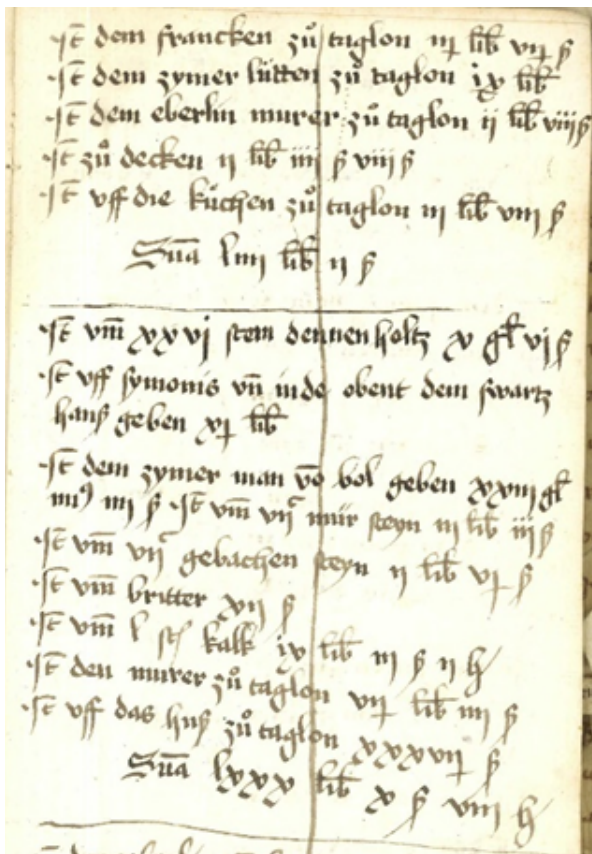 It dem francken zů taglon iij lib vij ß
It dem zymer lütten zů taglon ix lib
It dem eberlin murer zů taglon ii lib viii ß
It zů decken ii lib iiii ß viii ß
It vff die kuchen zů taglon iii lib viii ß
Sūa liiii lib ii ß
It vm̄ xxvj stem dennenholtz x gl vj ß
It vff symonis vn̄ inde obent dem swartz
hanß geben xj lib
It dem zymer man vō bol geben xxiii gl
iiii ß It vm̄ vijc mür steyn iii lib iii ß
It vm̄ vijc gebachen steyn ii lib vj ß
It vm̄ britter xvij ß
It vm̄ l kalk ix lib iii ß ii h
It den murer zů taglon vij lib iiii ß
It vff das huß zů taglon xxxvij ß
Sūa lxxx lib x ß viii h